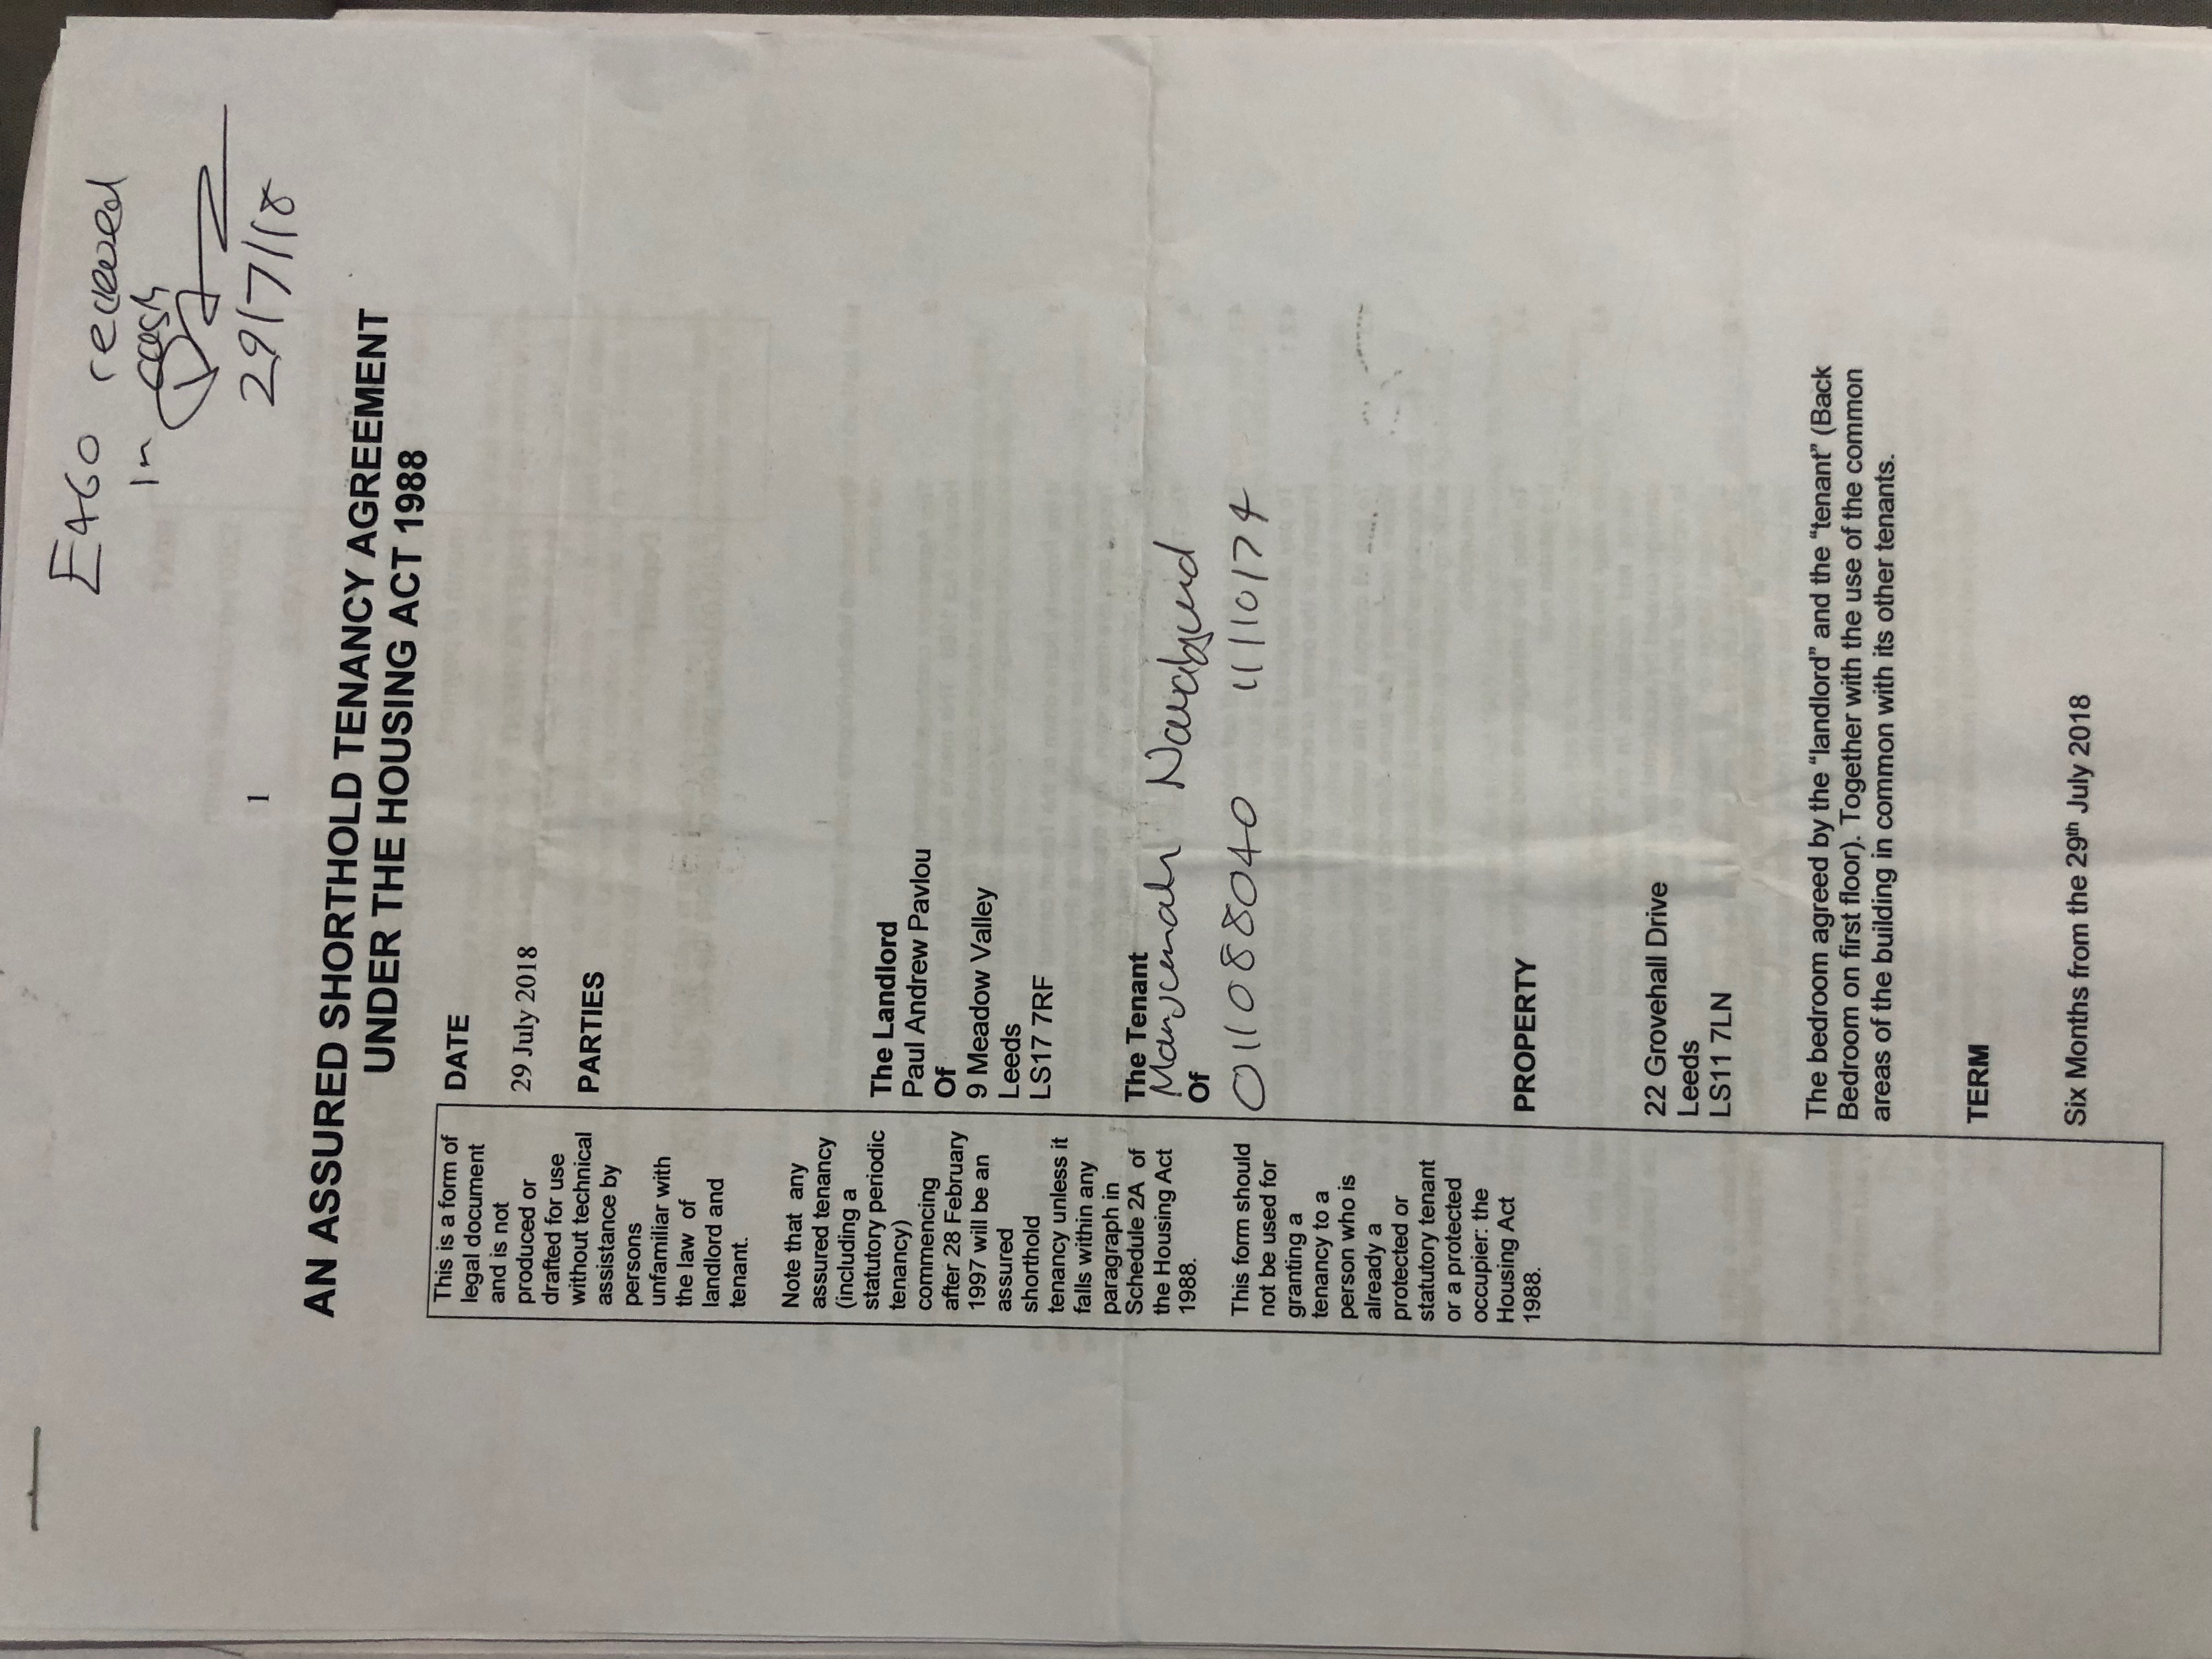 £460 recieved
in cash
29/7/18
1
AN ASSURED SHORTHOLD TENANCY AGREEMENT
UNDER THE HOUSING ACT 1988
This is a form of
legal document
and is not
produced or
drafted for use
without technical
assistance by
persons
unfamiliar with
the law of
landlord and
tenant.
Note that any
assured tenancy
(including a
statutory periodic
tenancy)
commencing
after 28 February
1997 will be an
assured
shorthold
tenancy unless it
falls within any
paragraph in
Schedule 2A of
the Housing Act
1988.
This form should
not be used for
granting a
tenancy to a
person who is
already a
protected or
statutory tenant
or a protected
occupier: the
Housing Act
1988.
DATE
29 July 2018
PARTIES
The Landlord
Paul Andrew Pavlou
Of
9 Meadow Valley
Leeds
LS17 7RF
The Tenant
Of
011088040 11/10/74
PROPERTY
22 Grovehall Drive
Leeds
LS11 7LN
The bedroom agreed by the “landlord” and the “tenant” (Back
Bedroom on first floor). Together with the use of the common
areas of the building in common with its other tenants.
TERM
Six Months from the 29th July 2018